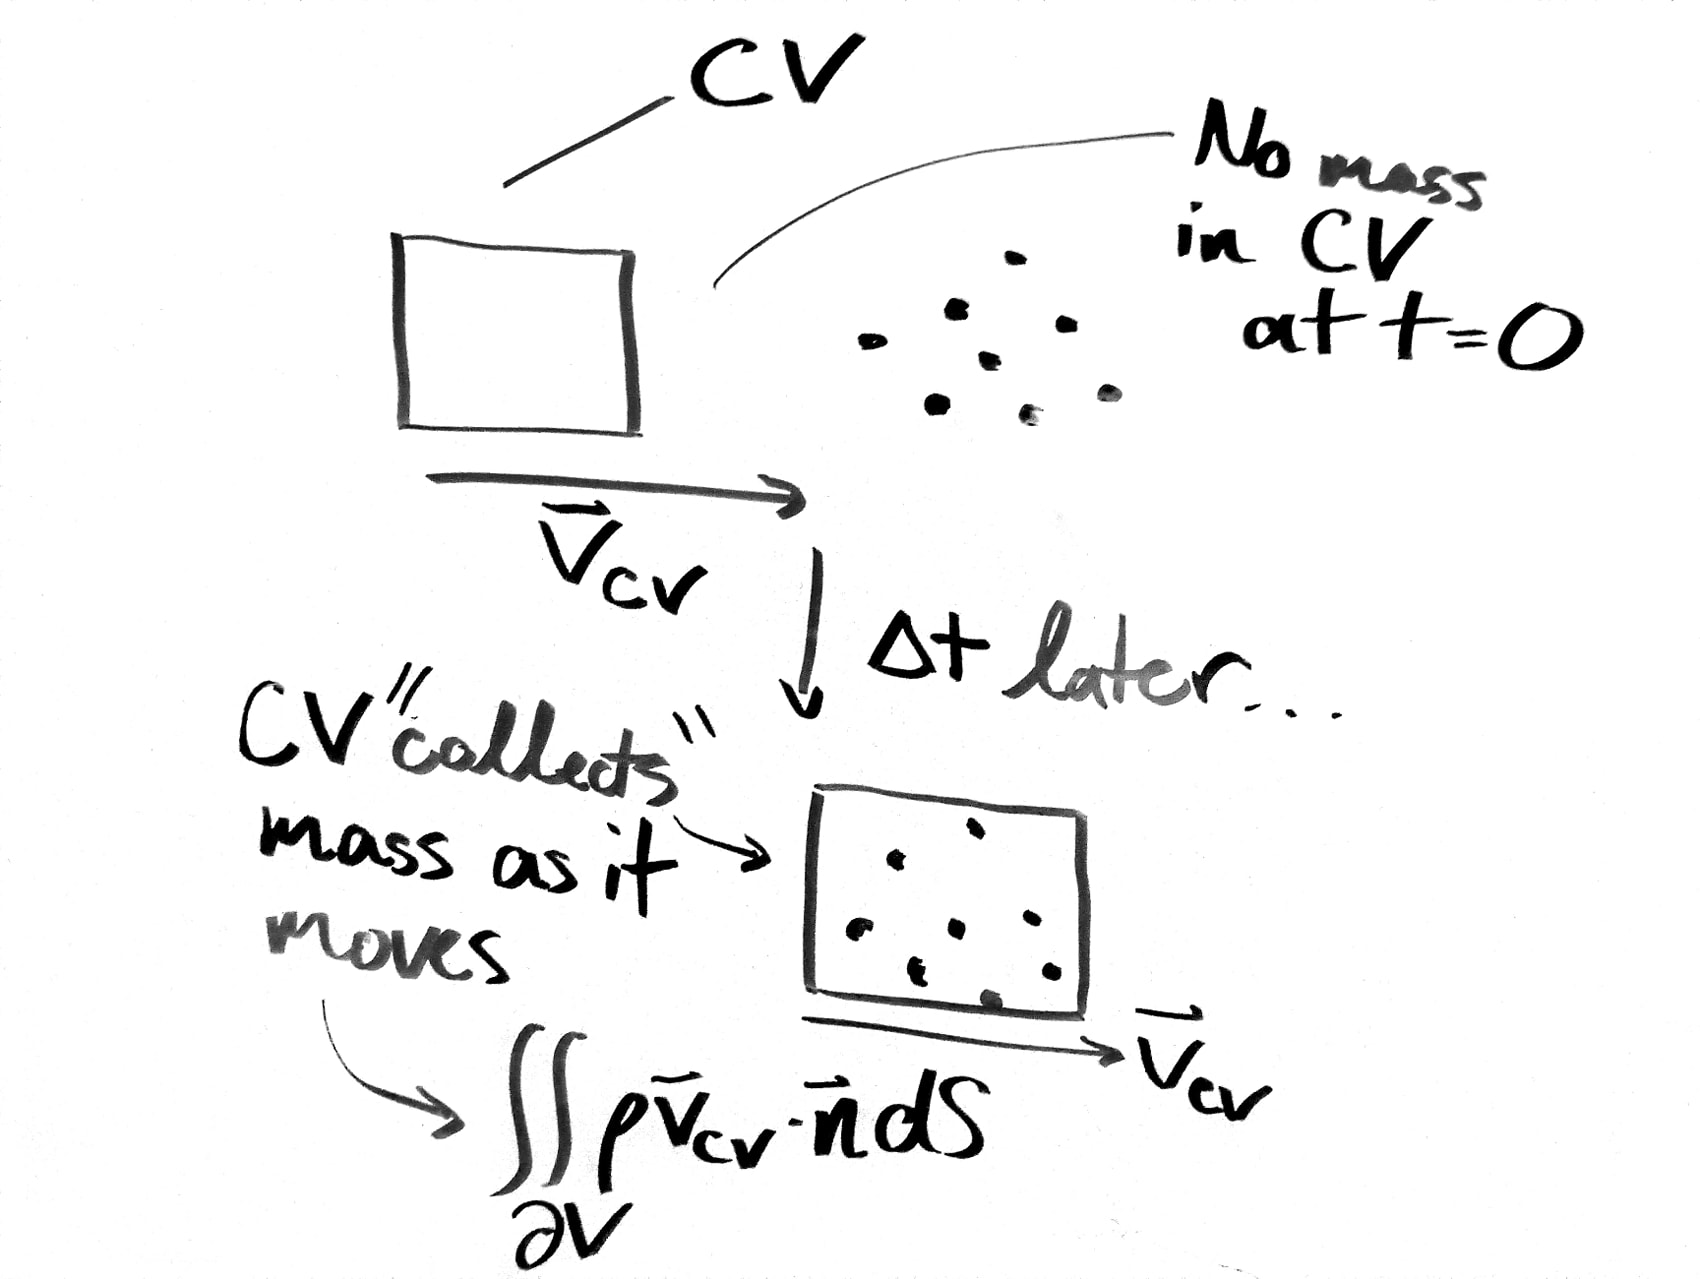 CV
No mass
in CV
at t=0
V⃗cv
Δt later...
CV "collects"
mass as it
moves
V⃗cv
∬ ρv⃗cv·n⃗dS
∂V